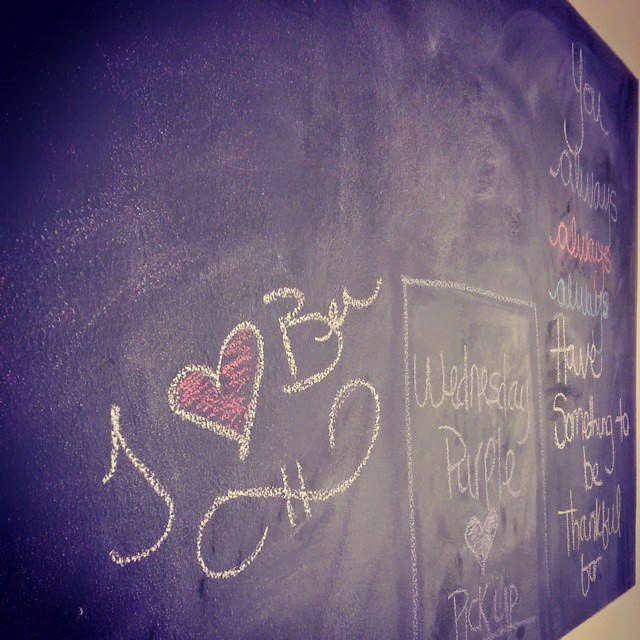 I ♥
Wednesday
Purple
♥
PICK UP
You
always
always
always
Have
Something to
be
thankful
for